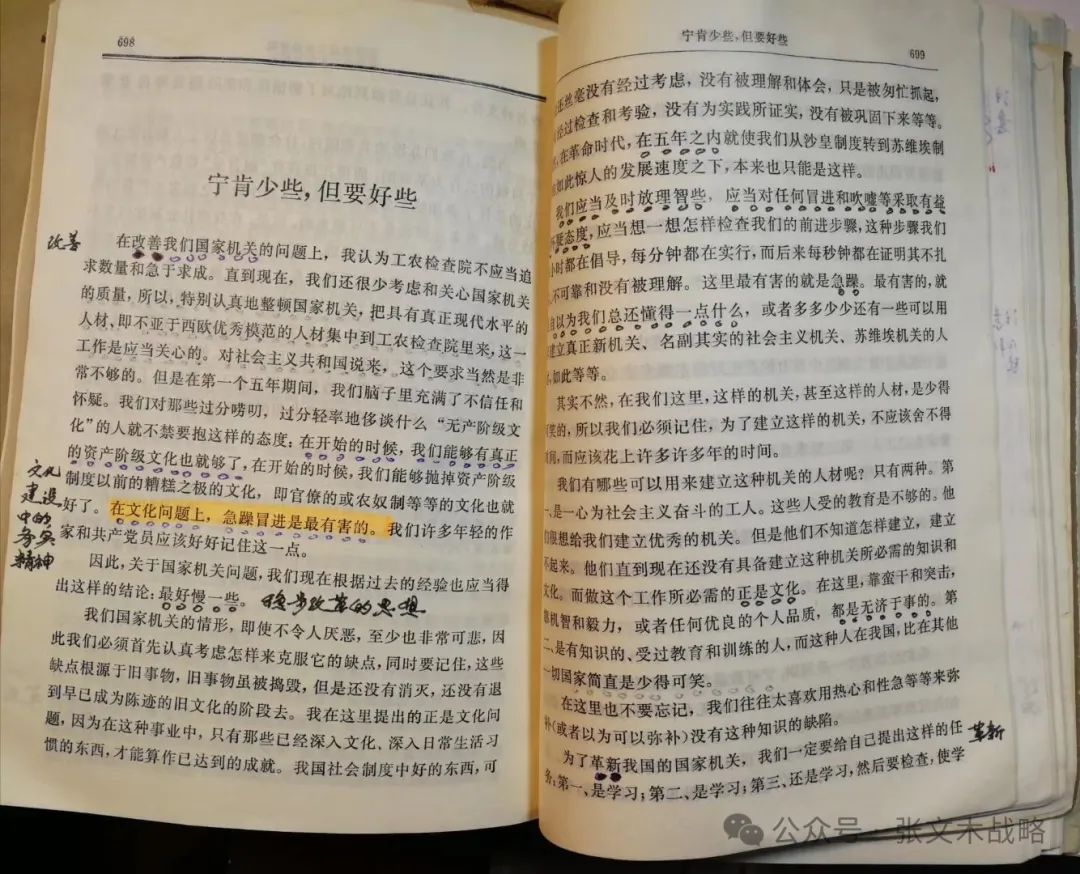 698
宁肯少些，但要好些
改善
在改善我们国家机关的问题上，我认为工农检查院不应当追
求数量和急于求成。直到现在，我们还很少考虑和关心国家机关
的质量，所以，特别认真地整顿国家机关，把具有真正现代水平的
人材，即不亚于西欧优秀模范的人材集中到工农检查院里来，这一
工作是应当关心的。对社会主义共和国说来，这个要求当然是非
常不够的。但是在第一个五年期间，我们脑子里充满了不信任和
怀疑。我们对那些过分唠叨，过分轻率地侈谈什么“无产阶级文
化”的人就不禁要抱这样的态度：在开始的时候，我们能够有真正
的资产阶级文化也就够了，在开始的时候，我们能够抛掉资产阶级
制度以前的糟糕之极的文化，即官僚的或农奴制等等的文化也就
好了。在文化问题上，急躁冒进是最有害的。我们许多年轻的作
家和共产党员应该好好记住这一点。
文化
建设
中的
务实
精神
因此，关于国家机关问题，我们现在根据过去的经验也应当得
出这样的结论：最好慢一些。 稳步改革的思想
我们国家机关的情形，即使不令人厌恶，至少也非常可悲，因
此我们必须首先认真考虑怎样来克服它的缺点，同时要记住，这些
缺点根源于旧事物，旧事物虽被捣毁，但是还没有消灭，还没有退
到早已成为陈迹的旧文化的阶段去。我在这里提出的正是文化问
题，因为在这种事业中，只有那些已经深入文化、深入日常生活习
惯的东西，才能算作已达到的成就。我国社会制度中好的东西，可
宁肯少些，但要好些
699
还丝毫没有经过考虑，没有被理解和体会，只是被匆忙抓起，
经过检查和考验，没有为实践所证实，没有被巩固下来等等。
在革命时代，在五年之内就使我们从沙皇制度转到苏维埃制
如此惊人的发展速度之下，本来也只能是这样。
我们应当及时放理智些，应当对任何冒进和吹嘘等采取有益
怀疑态度，应当想一想怎样检查我们的前进步骤，这种步骤我们
小时都在倡导，每分钟都在实行，而后来每秒钟都在证明其不扎
不可靠和没有被理解。这里最有害的就是急躁。最有害的，就
自以为我们总还懂得一点什么，或者多多少少还有一些可以用
建立真正新机关、名副其实的社会主义机关、苏维埃机关的人
如此等等。
其实不然，在我们这里，这样的机关，甚至这样的人材，是少得
笑的，所以我们必须记住，为了建立这样的机关，不应该舍不得
间，而应该花上许多许多年的时间。
我们有哪些可以用来建立这种机关的人材呢？只有两种。第
一、是一心为社会主义奋斗的工人。这些人受的教育是不够的。他
们很想给我们建立优秀的机关。但是他们不知道怎样建立，建立
不起来。他们直到现在还没有具备建立这种机关所必需的知识和
文化。而做这个工作所必需的正是文化。在这里，靠蛮干和突击，
靠机智和毅力，或者任何优良的个人品质，都是无济于事的。第
二、是有知识的、受过教育和训练的人，而这种人在我国，比在其他
一切国家简直是少得可笑。
在这里也不要忘记，我们往往太喜欢用热心和性急等等来弥
补（或者以为可以弥补）没有这种知识的缺陷。
革新
为了革新我国的国家机关，我们一定要给自己提出这样的任
务：第一、是学习；第二、是学习；第三、还是学习，然后要检查，使学
公众号·张文木战略